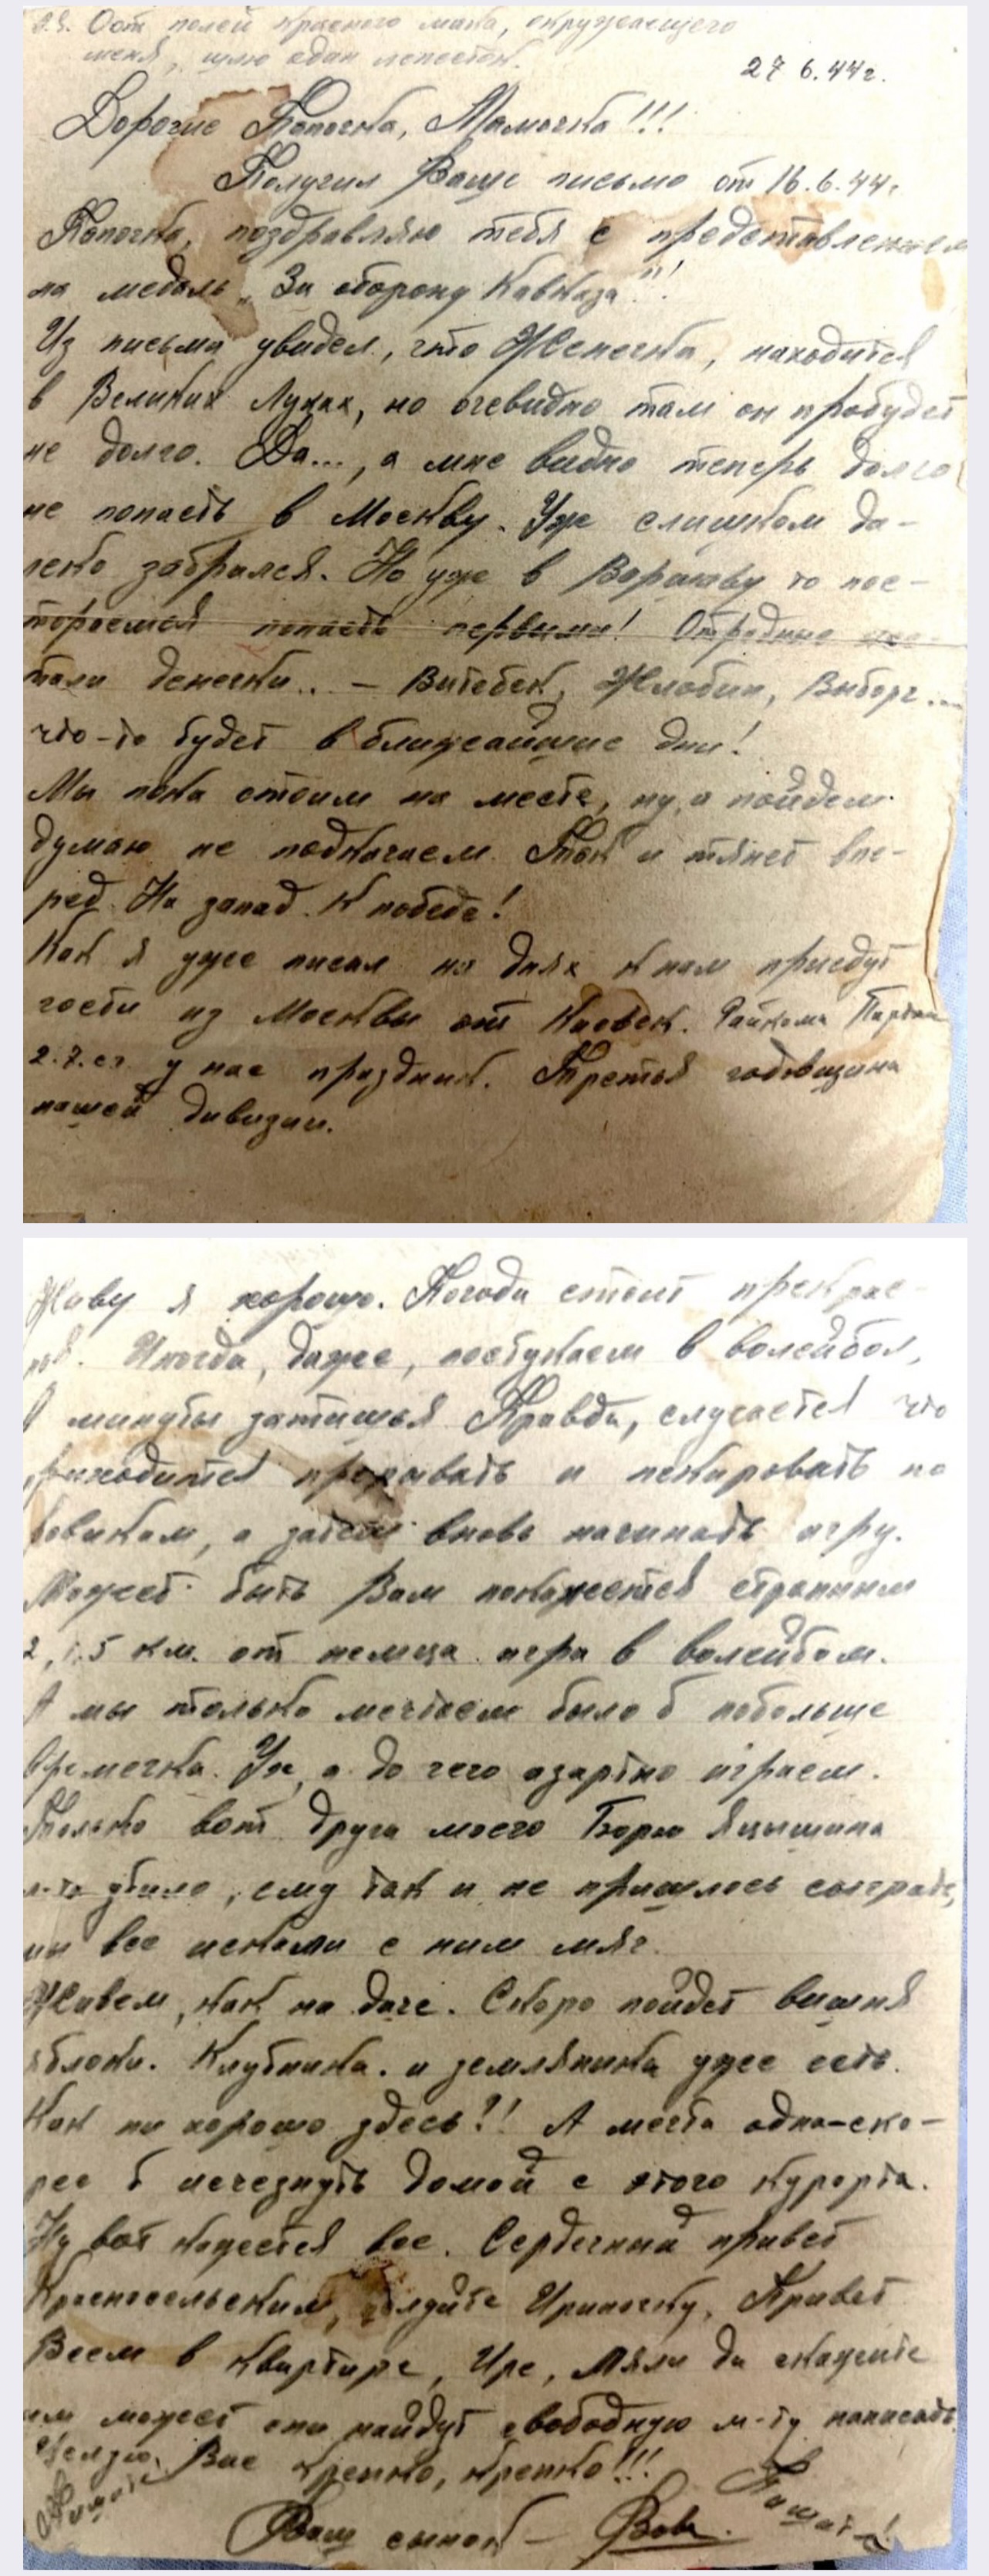 P.S. Вот полей красного мака, окружающего
меня, шлю один лепесток.
27 6.44г.
Дорогие Папочка, Мамочка!!!
Получил Ваше письмо от 16.6.44г.
Папочка, поздравляю тебя с представлением
на медаль „За оборону Кавказа"!
Из письма увидел, что Женечка, находится
в Великих Луках, но очевидно там он пробудет
не долго. Да..., а мне видно теперь долго
не попасть в Москву. Уж слишком да-
леко забрался. Но уже в Варшаву то пос-
тараемся попасть первыми! Отрадные
тали денечки.. – Витебск, Жлобин, Выборг...
что-то будет в ближайшие дни!
Мы пока стоим на месте, ну, а пойдем
думаю не подкачаем. Так и тянет впе-
ред. На запад. К победе!
Как я уже писал на днях к нам приедут
гости из Москвы от Киевск. Райкома Партии
2.7.сг. у нас праздник. Третья годовщина
нашей дивизии.
Живу я хорошо. Погода стоит прекрас-
ная. Иногда, даже, постукаем в волейбол,
в минуты затишья Правда, случается что
приходится прерывать и пикировать по
ровикам, а затем вновь начинать игру.
Может быть Вам покажется странным
2, 1,5 км. от немца игра в волейбол.
А мы только мечтаем было б побольше
времечка. Ух, а до чего азартно играем.
Только вот друга моего Борю Яцышина
убило, ему так и не пришлось сыграть,
мы все искали с ним мяч.
Живем, как на даче. Скоро пойдет вишня
яблоки. Клубника. и земляника уже есть.
Как ни хорошо здесь?! А мечта одна-ско-
рее б исчезнуть домой с этого курорта.
Ну вот кажется все. Сердечный привет
Красносельским, целуйте Ириночку, Привет
Всем в квартире, Ире, Мяли да скажите
им может они найдут свободную м-ту написать.
Целую Вас крепко, крепко!!!
Пишите
Пишите!
Ваш сынок – Вова.